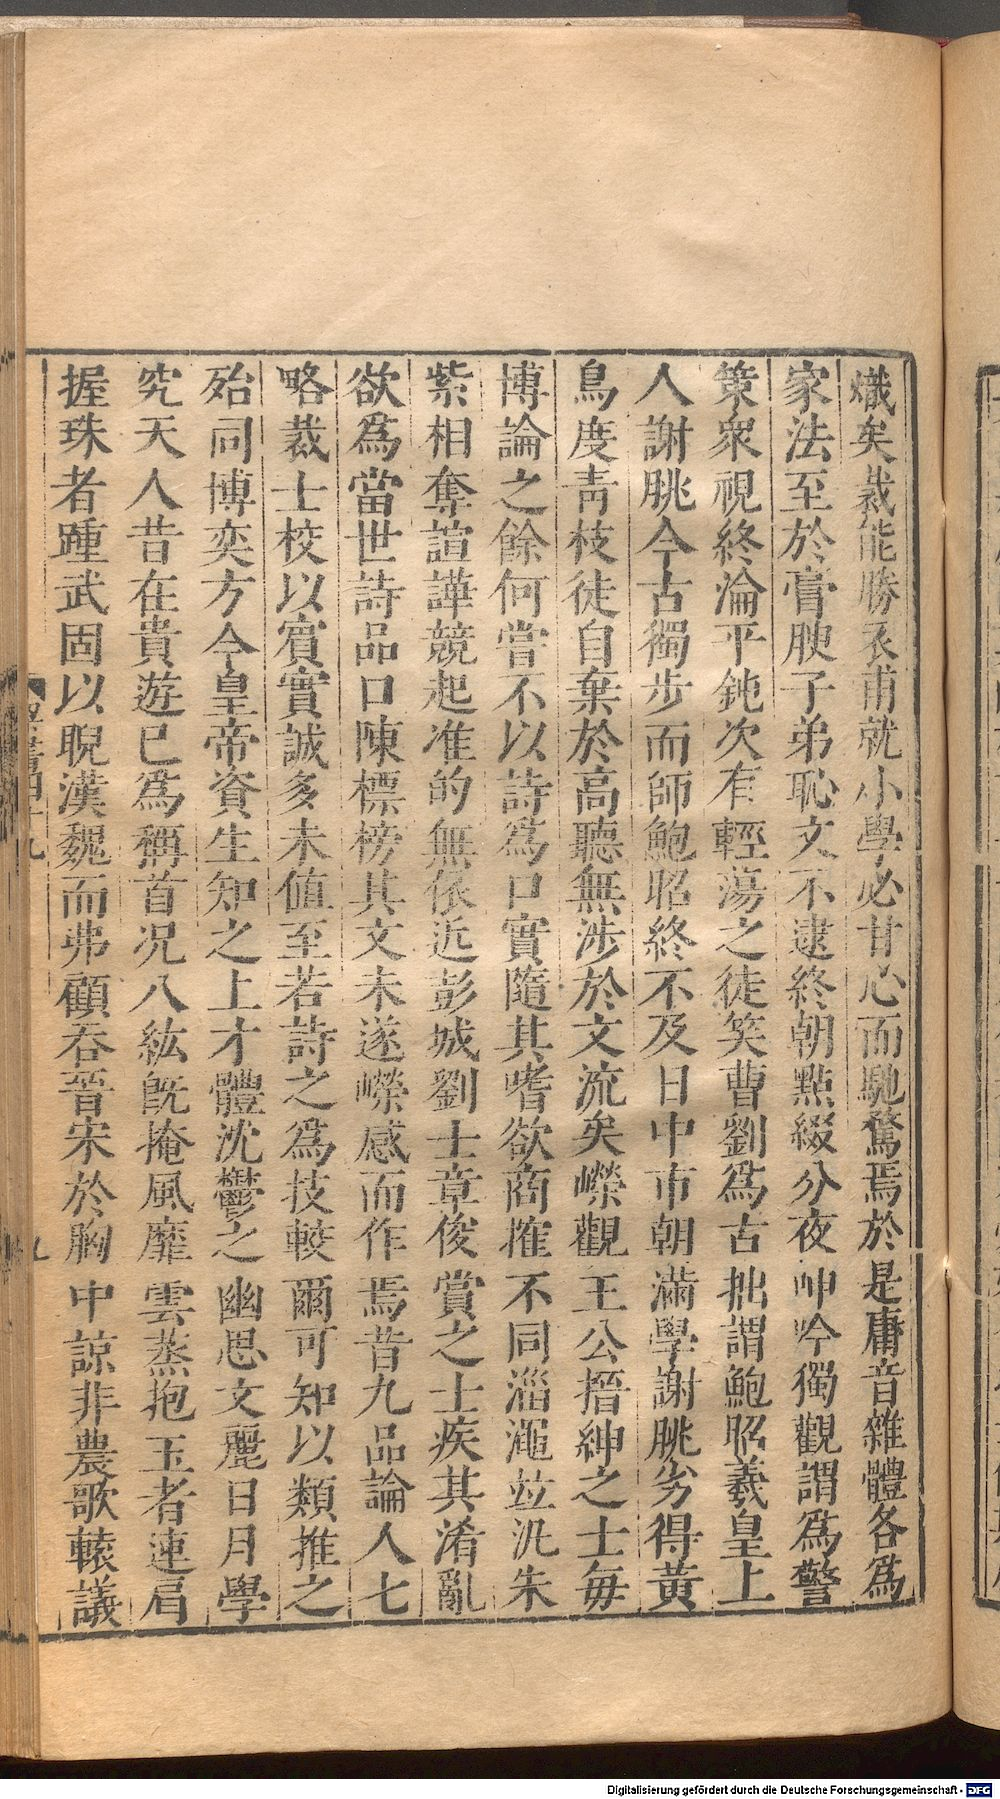 熾矣裁能勝衣甫就小學必甘心而馳騖焉於是庸音雜體各爲
家法至於膏腴子弟恥文不逮終朝點綴分夜呻吟獨觀謂爲警
策衆視終淪平鈍次有輕蕩之徒笑曹劉爲古拙謂鮑昭羲皇上
人謝朓今古獨步而師鮑昭終不及日中市朝滿學謝朓劣得黃
鳥度青枝徒自棄於高聽無涉於文流矣嶸觀王公搢紳之士每
博論之餘何嘗不以詩爲口實隨其嗜欲商搉不同淄澠竝汎朱
紫相奪諠譁競起准的無依近彭城劉士章俊賞之士疾其淆亂
欲爲當世詩品口陳標榜其文未遂嶸感而作焉昔九品論人七
略裁士校以賓實誠多未值至若詩之爲技較爾可知以類推之
殆同博奕方今皇帝資生知之上才體沈鬱之幽思文麗日月學
究天人昔在貴遊已爲稱首况八紘旣掩風靡雲蒸抱玉者連肩
握珠者踵武固以睨漢魏而弗顧吞晉宋於胸中諒非農歌轅議
梁書四十九
九
Digitalisierung gefördert durch die Deutsche Forschungsgemeinschaft - DFG